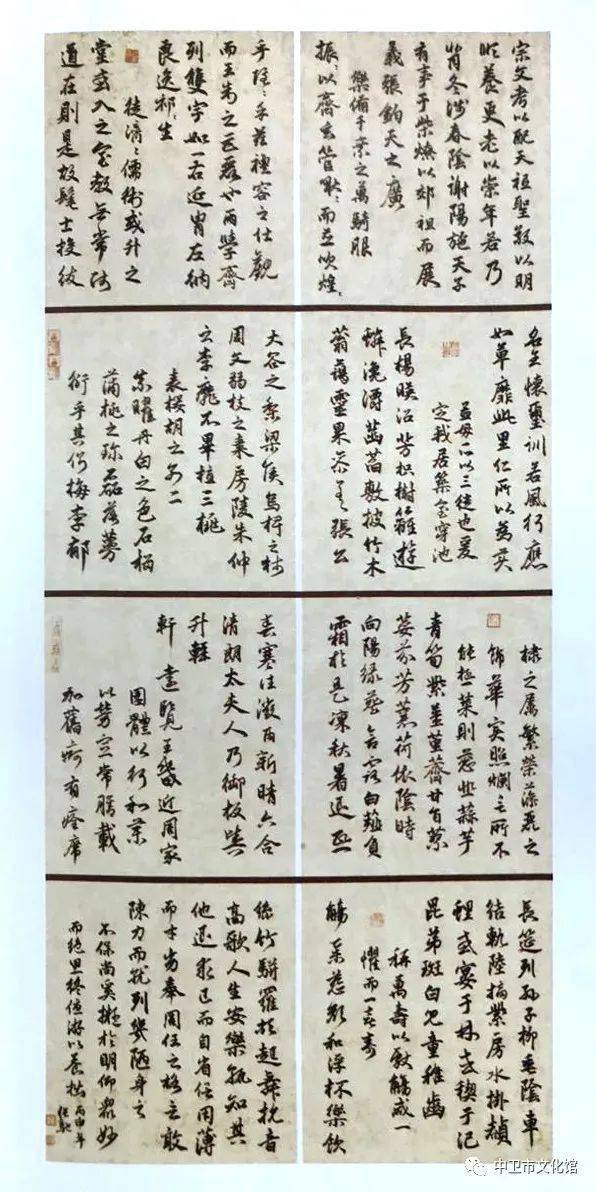 宗文考以配天祖聖敬以明
順養更老以崇年若乃
背冬涉春陰謝陽施天子
有事于柴燎以郊祖而展
義張鈞天之廣
樂備千乘之萬騎服
振〻以齊玄管啾〻而並吹煌〻
乎隱〻乎茲禮容之壯觀
而王制之巨麗也兩學齊
列雙宇如一右延胄左納
良逸祁〻生
徒濟〻儒術或升之
堂或入之室教無常師
道在則是故髦士投紱
名王懷璽訓若風行應
如草靡此里仁所以為美
孟母所以三徙也爰
定我居築室穿池
長楊映沼芳枳樹籬遊
鱗瀺灂菡萏敷披竹木
蓊藹靈果參差張公
大谷之梨梁侯烏椑之柿
周文弱枝之棗房陵朱仲
之李靡不畢植三桃
表櫻胡之別二
柰曜丹白之色石榴
蒲桃之珍磊落蔓
衍乎其側梅李郁
棣之屬繁榮藻麗之
飾華實照爛言所不
能極菜則蔥韭蒜芋
青筍紫薑堇薺甘旨蓼
荾芬芳蘘荷依陰時
向陽綠葵含露白薤負
霜於是凜秋暑退熙
春寒往微雨新晴六合
清朗太夫人乃御板輿
升輕
軒遠覽王畿近周家
園體以行和藥
以勞宣常膳載
加舊痾有痊席
長筵列孫子柳垂陰車
結軌陸摘紫房水掛赬
鯉或宴于林或禊于汜
昆弟斑白兒童稚齒
稱萬壽以獻觴咸一
懼而一喜壽
觴舉慈顏和浮杯樂飲
絲竹駢羅起舞抗音
高歌人生安樂孰知其
他退求己而自省信用薄
而才劣奉周任之格言敢
陳力而就列幾陋身之
不保尚奚擬於明仰眾妙
而絕思終優游以養拙丙申年
中卫市文化馆